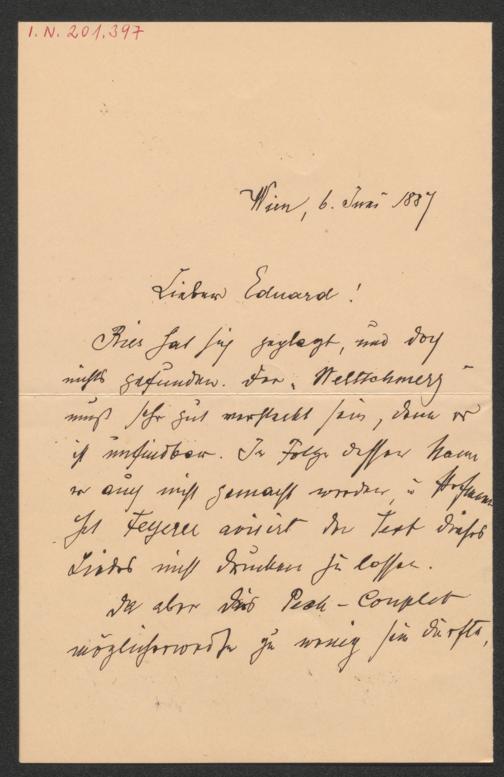 I. N. 201.397
Wien, 6. Juni 1887
Lieber Eduard!
Ries hat sich geplagt, und doch
nichts gefunden. Der „Weltschmerz"
muß sehr gut versteckt sein, denn er
ist unfindbar. In Folge dessen kann
er auch nicht gemacht werden, u Hofmann
hat Feyerer avisirt den Text dieses
Liedes nicht drucken zu lassen.
Da aber das Pech-Couplet
möglicherweise zu wenig sein dürfte,